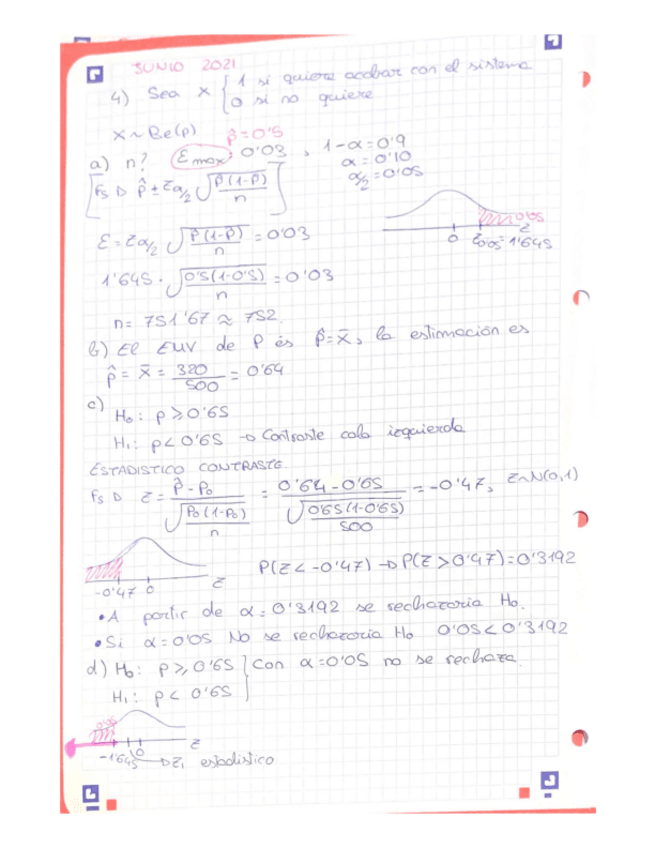 JUNIO 2021
4) Sea X { 1 si quiere acabar con el sistema
0 si no quiere
X ~ Be(p) p̂ = 0'5
a) n? Emax 0'03, 1-α = 0'9
α = 0'10
α/2 = 0'05
[Fs D p̂ ± zα/2 √(p̂(1-p̂)/n)]
0'05
0 z0'05 = 1'645 z
ε = zα/2 √(p̂(1-p̂)/n) = 0'03
1'645 · √(0'5(1-0'5)/n) = 0'03
n = 751'67 ≈ 752
b) El EMV de P és p̂ = x̄, la estimación es
p̂ = x̄ = 320/500 = 0'64
c)
H0: p ≥ 0'65
H1: p < 0'65 → Contraste cola izquierda
ESTADISTICO CONTRASTE
Fs D z = (p̂ - p0)/√(p0(1-p0)/n) = (0'64 - 0'65)/√(0'65(1-0'65)/500) = -0'47, z ~ N(0,1)
-0'47 0 z
P(z < -0'47) → P(z > 0'47) = 0'3192
• A partir de α = 0'3192 se rechazaria H0.
• Si α = 0'05 No se rechazaria H0 0'05 < 0'3192
d) H0: p ≥ 0'65 } Con α = 0'05 no se rechaza.
H1: p < 0'65
0'05
-1'645 0 z
→ z, estadistico